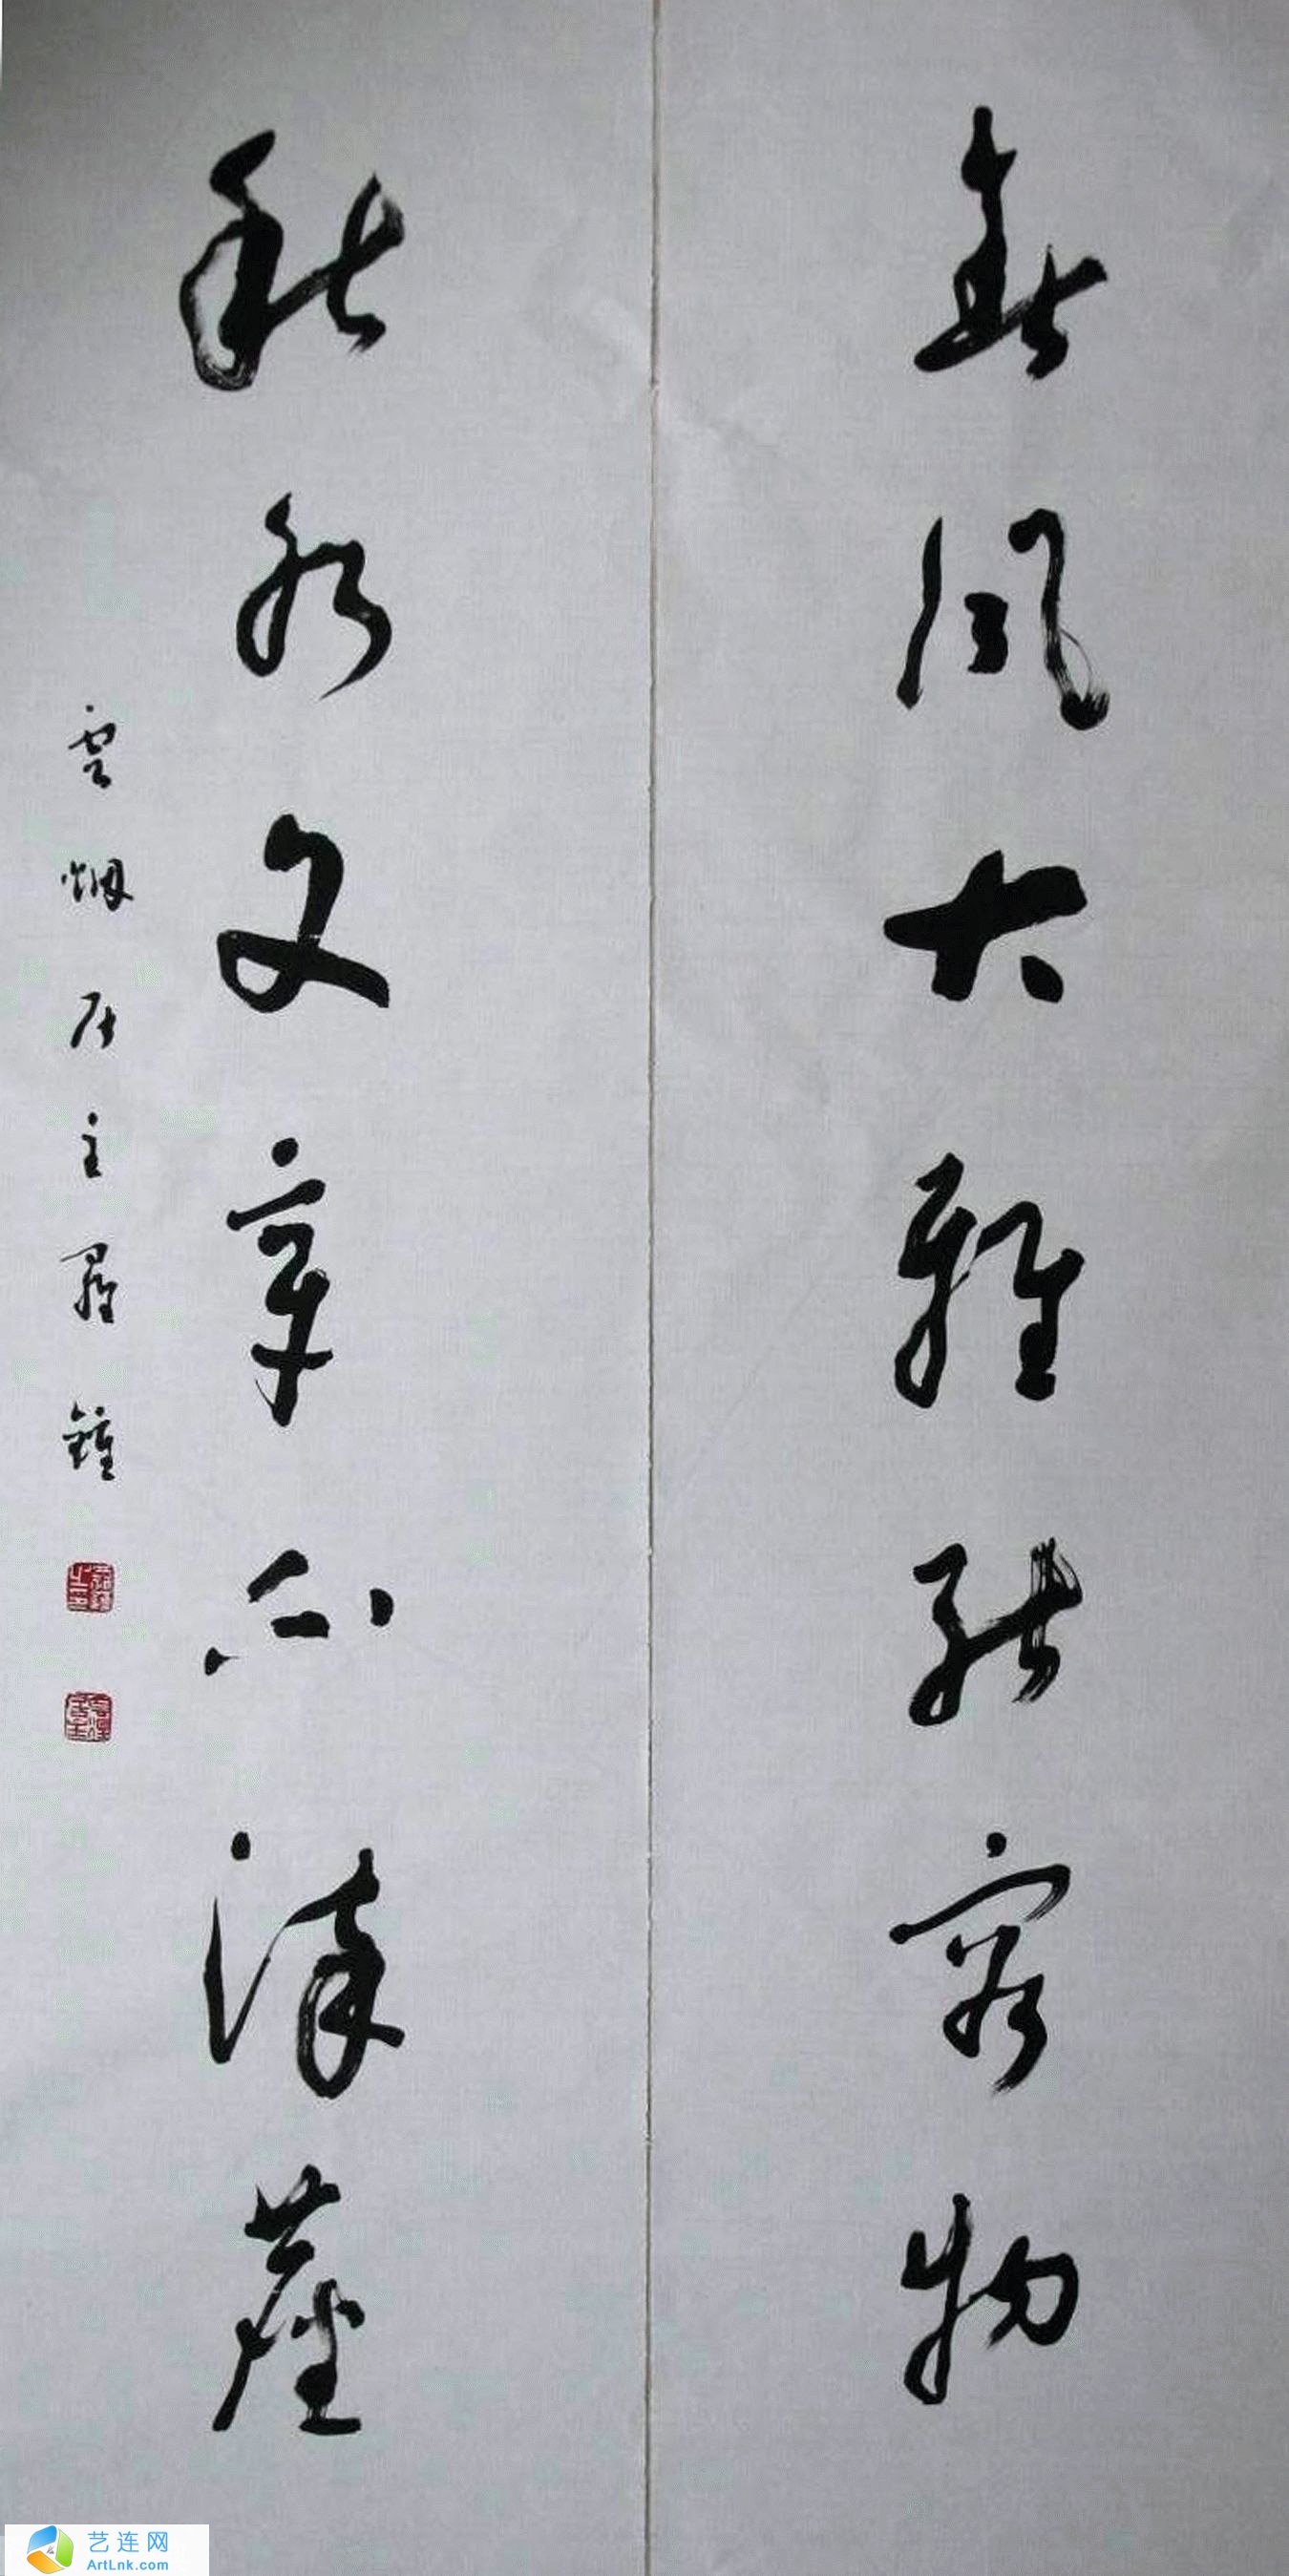 春風大雅能容物
秋水文章不染塵
雲烟居主羅鍾
艺连网
ArtLnk.com